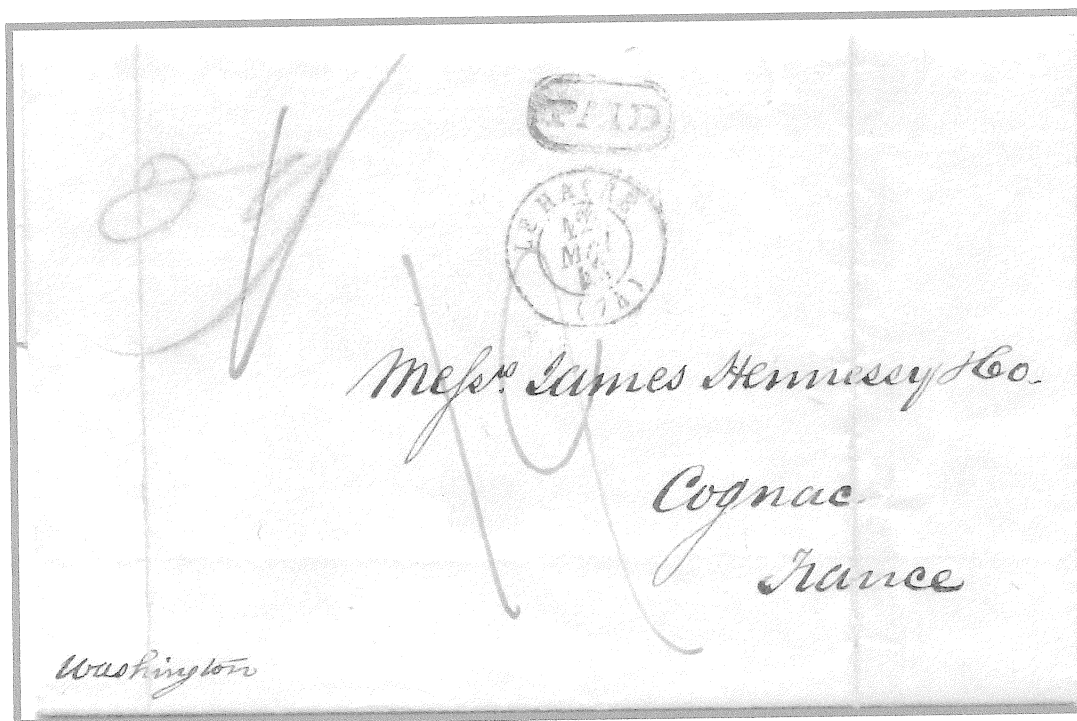 PAID
LE HAVRE
MAI
(74)
Messrs. James Hennessy & Co.
Cognac
France
Washington